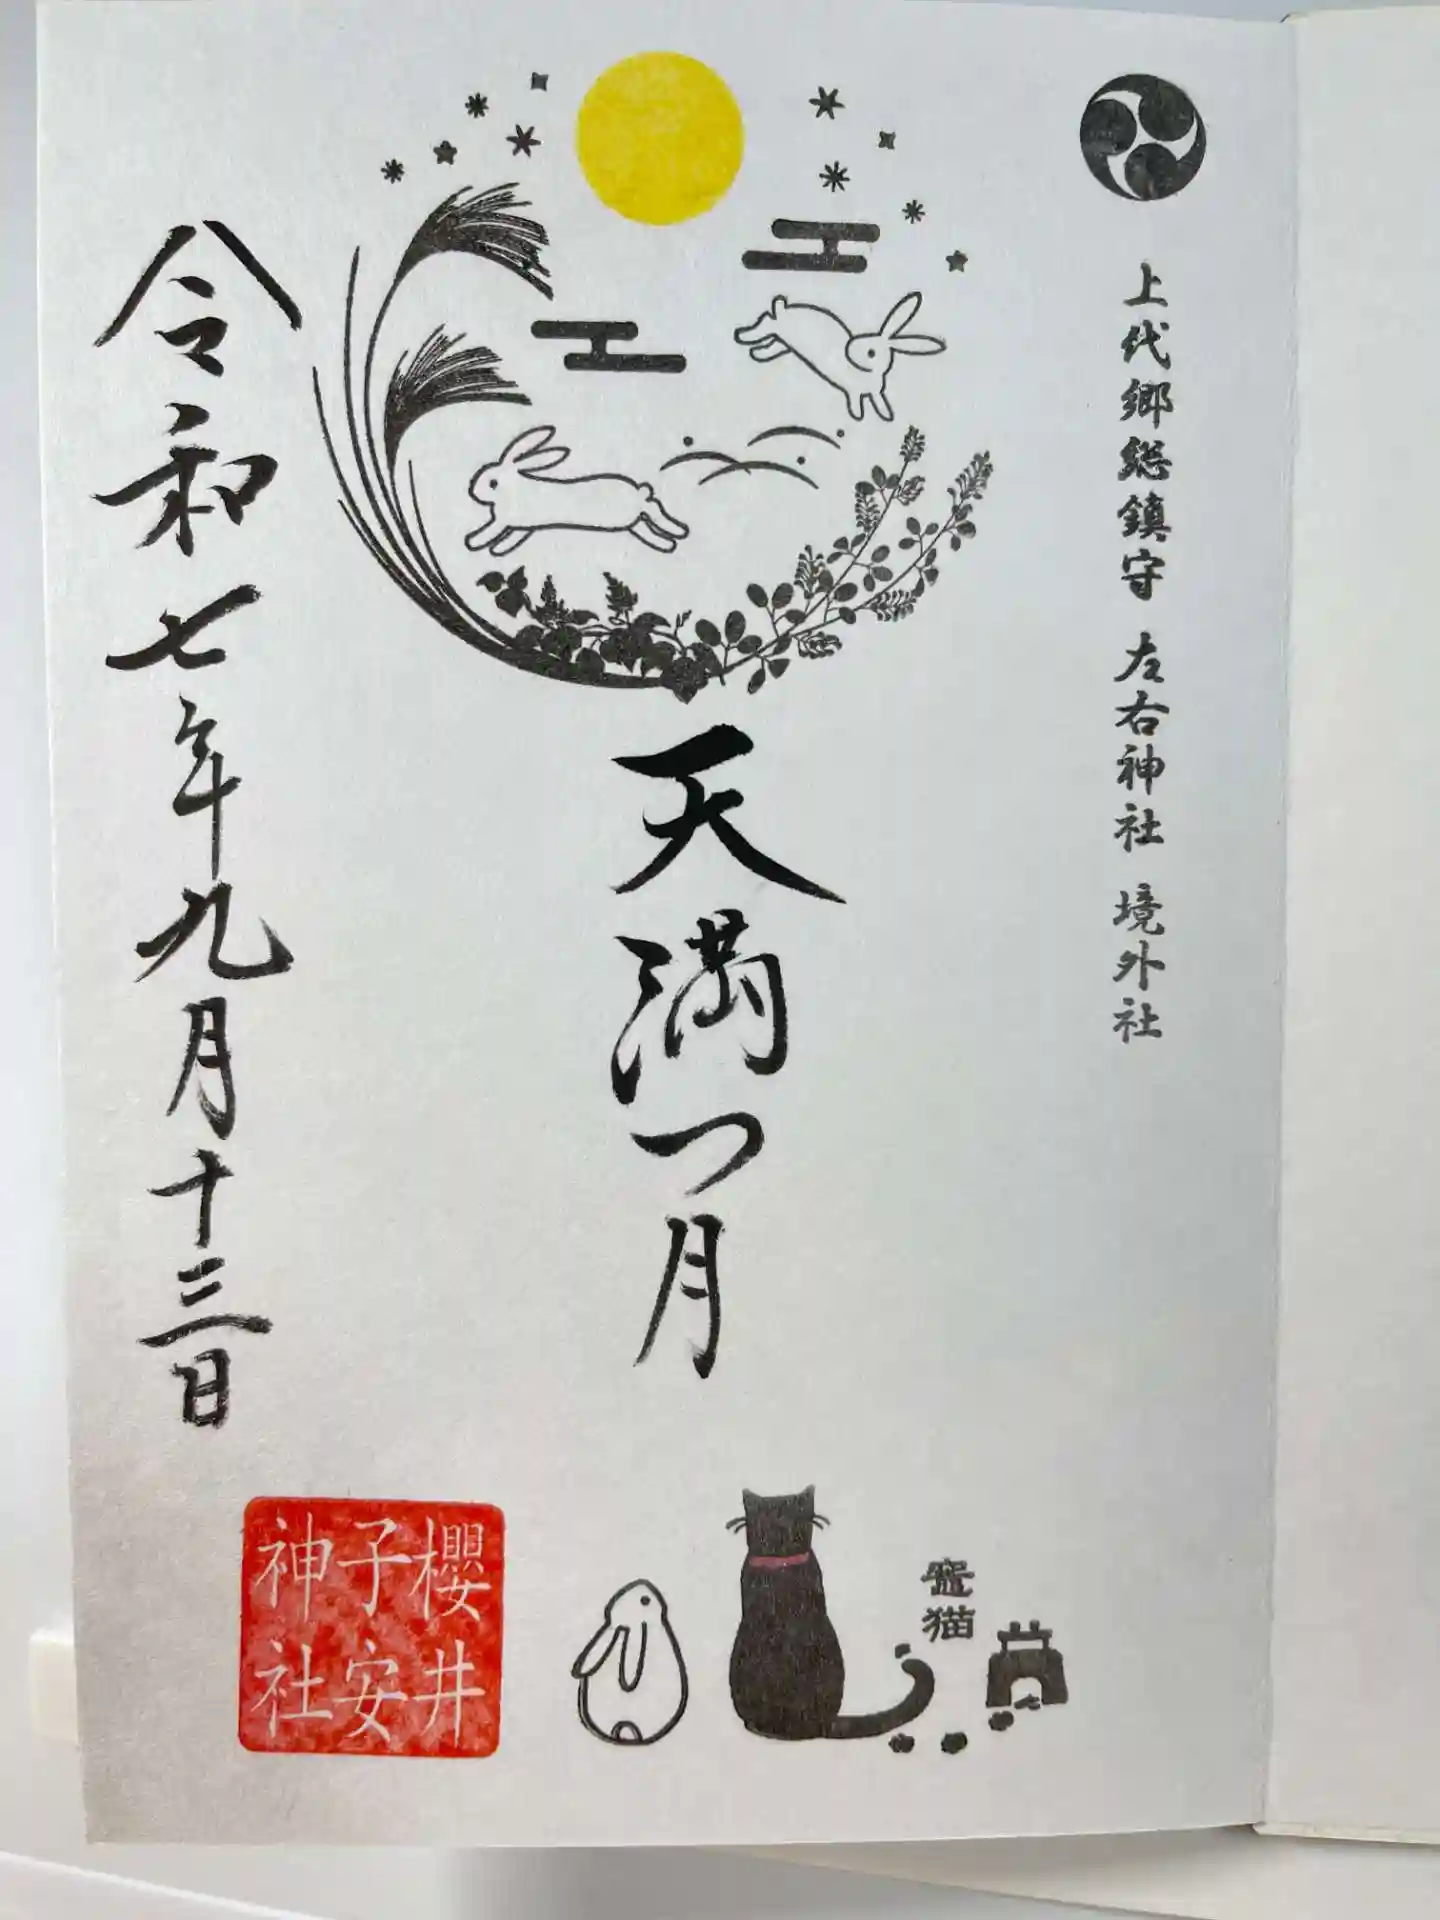 上代郷総鎮守 左右神社 境外社
天満つ月
令和七年九月十三日
竈猫
櫻井
子安
神社